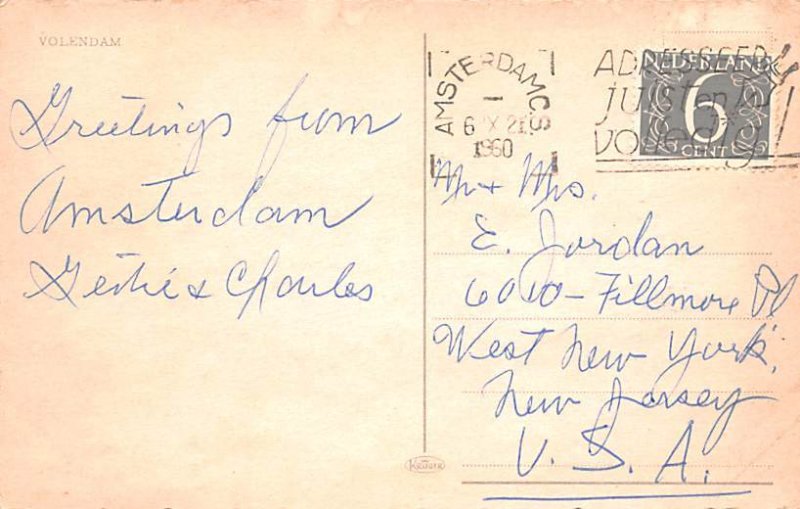 VOLENDAM
Greetings from
Amsterdam
& Charles
AMSTERDAM CS
6 IX 21
1960
ADRESSEER
juist en
volledig
NEDERLAND
6
CENT
Mr + Mrs.
E. Jordan
6010 - Fillmore Pl
West New York,
New Jersey
U. S. A.
Krüger